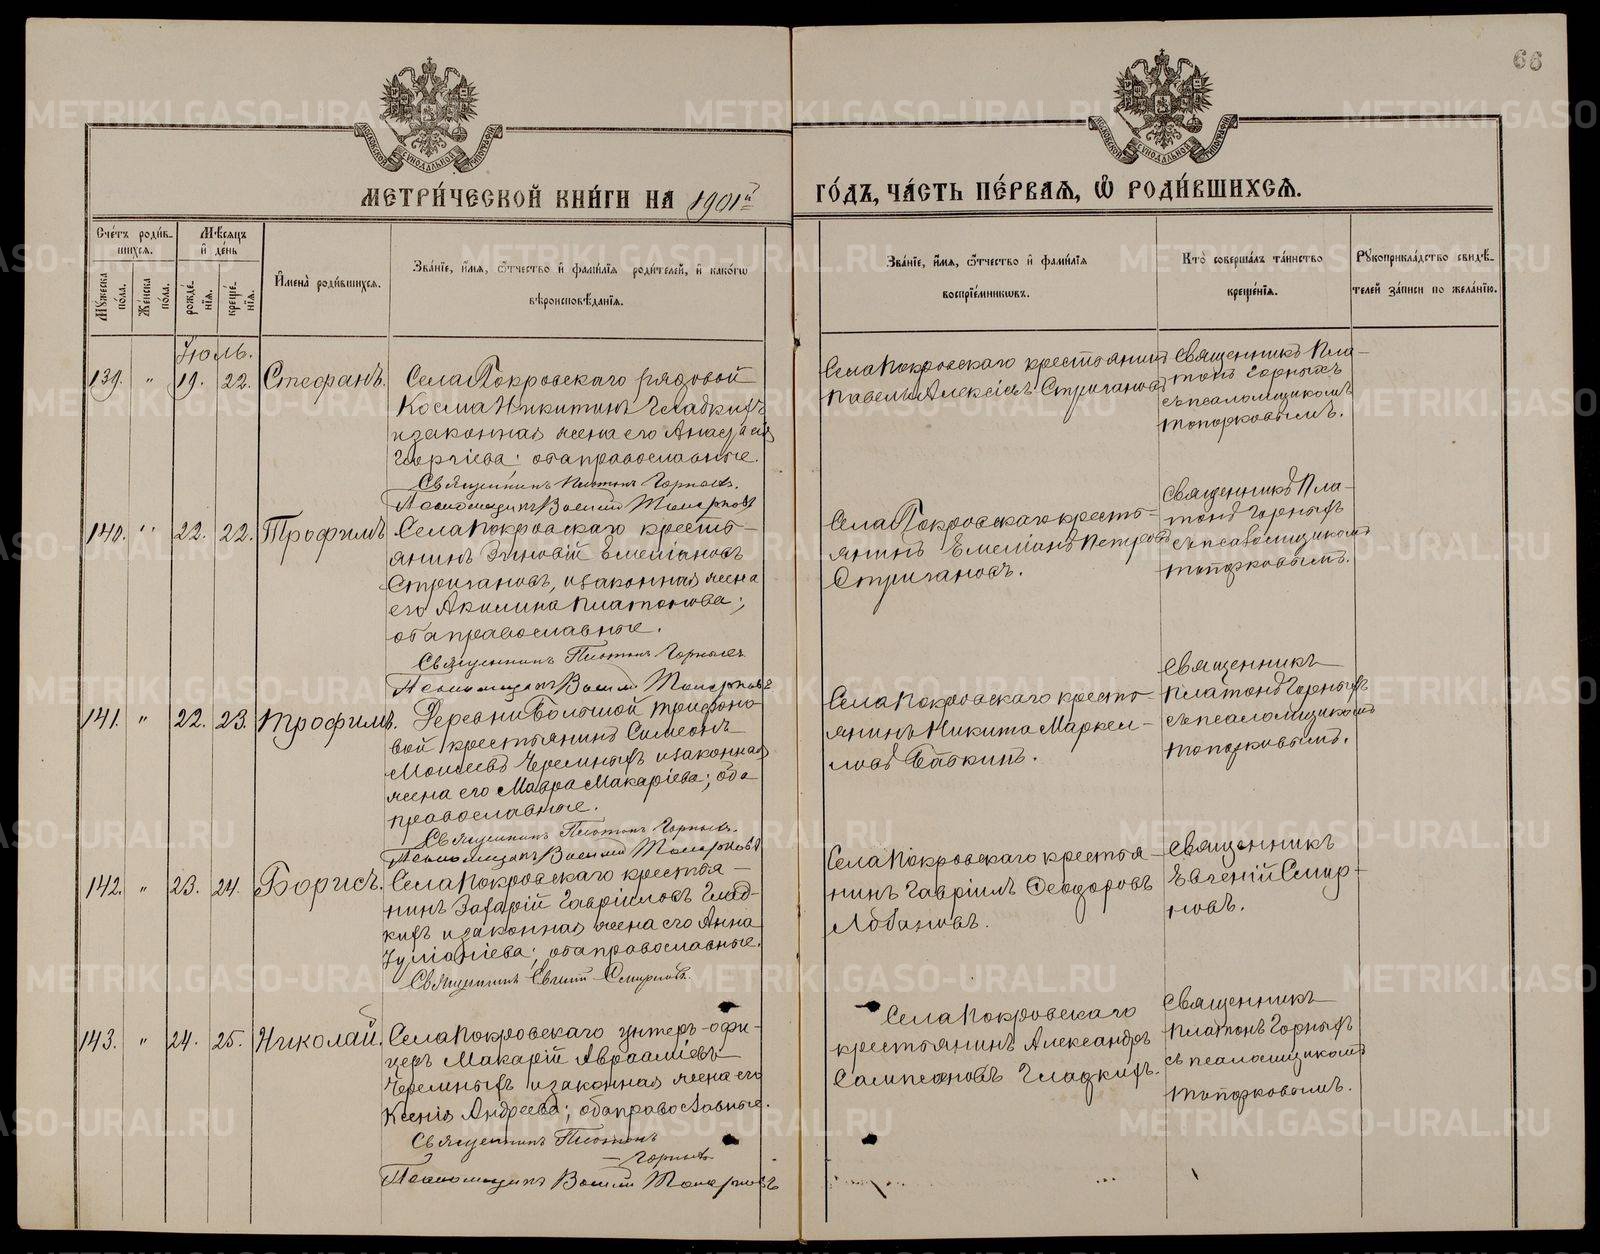 66
МОСКОВСКОЙ СѴНОДАЛЬНОЙ ТИПОГРАФІИ
МОСКОВСКОЙ СѴНОДАЛЬНОЙ ТИПОГРАФІИ
МЕТРИ́ЧЕСКОЙ КНИ́ГИ НА 1901й
ГО́ДЪ, ЧА́СТЬ ПЕ́РВАѦ, Ѿ РОДИ́ВШИХСѦ.
Сче́тъ роди́в-
шихсѧ.
Мꙋ́жеска по́ла.
Же́нска по́ла.
Мѣ́сѧцъ
и де́нь
рожде́-
нїѧ.
креще́-
нїѧ.
Имена̀ роди́вшихсѧ.
Зва́нїе, и́мѧ, ѻ́тчество и фами́лїѧ роди́телей, и како́гѡ
вѣроисповѣ́данїѧ.
Зва́нїе, и́мѧ, ѻ́тчество и фами́лїѧ
воспрїе́мникѡвъ.
Кто̀ соверша́лъ та́инство
креще́нїѧ.
Рꙋкоприкла́дство свидѣ́-
телей за́писи по жела́нїю.
Іюль.
139. " 19. 22. Стефанъ.
Села Покровскаго рядовой
Косма Никитинъ Гладкихъ
и законная жена его Анастасія
Георгіева; оба православные.
Священникъ Платонъ Горныхъ.
Псаломщикъ Василій Топорковъ
Села Покровскаго крестьянинъ
Павелъ Алексѣевъ Стригановъ
Священникъ Пла-
тонъ Горныхъ
съ псаломщикомъ
Топорковымъ.
140. " 22. 22. Трофимъ
Села Покровскаго кресть-
янинъ Зиновій Емеліановъ
Стригановъ, и законная жена
его Акилина Платонова;
оба православные.
Священникъ Платонъ Горныхъ
Псаломщикъ Василій Топорковъ
Села Покровскаго кресть-
янинъ Емеліанъ Петровъ
Стригановъ.
Священникъ Пла-
тонъ Горныхъ
съ псаломщикомъ
Топорковымъ.
141. " 22. 23. Трофимъ.
Деревни Большой Трифоно-
вой крестьянинъ Симеонъ
Моисеевъ Черемныхъ и законная
жена его Мавра Макаріева; оба
православные.
Священникъ Платонъ Горныхъ.
Псаломщикъ Василій Топорковъ
Села Покровскаго кресть-
янинъ Никита Маркел-
ловъ Бабкинъ.
Священникъ
Платонъ Горныхъ
съ псаломщикомъ
Топорковымъ.
142. " 23. 24. Борисъ.
Села Покровскаго крестья-
нинъ Захарій Гавріиловъ Глад-
кихъ и законная жена его Анна
Іуліаніева; оба православные.
Священникъ Евгеній Смирновъ.
Села Покровскаго крестья-
нинъ Гавріилъ Феодоровъ
Лобановъ.
Священникъ
Евгеній Смир-
новъ.
143. " 24. 25. Николай.
Села Покровскаго унтеръ-офи-
церъ Макарій Авраамієвъ
Черемныхъ и законная жена его
Ксенія Андреева; оба православные.
Священникъ Платонъ
Горныхъ
Псаломщикъ Василій Топорковъ
Села Покровскаго
крестьянинъ Александръ
Сампсоновъ Гладкихъ.
Священникъ
Платонъ Горныхъ
съ псаломщикомъ
Топорковымъ.
METRIKI.GASO-URAL.RU